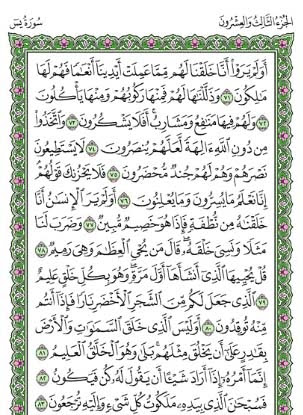 سُورَةُ يسٓ الجُزْءُ الثَّالِثُ وَالعِشْرُونَ
أَوَلَمْ يَرَوْا۟ أَنَّا خَلَقْنَا لَهُم مِّمَّا عَمِلَتْ أَيْدِينَآ أَنْعَٰمًا فَهُمْ لَهَا
مَٰلِكُونَ ٧١ وَذَلَّلْنَٰهَا لَهُمْ فَمِنْهَا رَكُوبُهُمْ وَمِنْهَا يَأْكُلُونَ
٧٢ وَلَهُمْ فِيهَا مَنَٰفِعُ وَمَشَارِبُ أَفَلَا يَشْكُرُونَ ٧٣ وَٱتَّخَذُوا۟
مِن دُونِ ٱللَّهِ ءَالِهَةً لَّعَلَّهُمْ يُنصَرُونَ ٧٤ لَا يَسْتَطِيعُونَ
نَصْرَهُمْ وَهُمْ لَهُمْ جُندٌ مُّحْضَرُونَ ٧٥ فَلَا يَحْزُنكَ قَوْلُهُمْ
إِنَّا نَعْلَمُ مَا يُسِرُّونَ وَمَا يُعْلِنُونَ ٧٦ أَوَلَمْ يَرَ ٱلْإِنسَٰنُ أَنَّا
خَلَقْنَٰهُ مِن نُّطْفَةٍ فَإِذَا هُوَ خَصِيمٌ مُّبِينٌ ٧٧ وَضَرَبَ لَنَا
مَثَلًا وَنَسِىَ خَلْقَهُۥ قَالَ مَن يُحْىِ ٱلْعِظَٰمَ وَهِىَ رَمِيمٌ ٧٨
قُلْ يُحْيِيهَا ٱلَّذِىٓ أَنشَأَهَآ أَوَّلَ مَرَّةٍ وَهُوَ بِكُلِّ خَلْقٍ عَلِيمٌ
٧٩ ٱلَّذِى جَعَلَ لَكُم مِّنَ ٱلشَّجَرِ ٱلْأَخْضَرِ نَارًا فَإِذَآ أَنتُم
مِّنْهُ تُوقِدُونَ ٨٠ أَوَلَيْسَ ٱلَّذِى خَلَقَ ٱلسَّمَٰوَٰتِ وَٱلْأَرْضَ
بِقَٰدِرٍ عَلَىٰٓ أَن يَخْلُقَ مِثْلَهُم بَلَىٰ وَهُوَ ٱلْخَلَّٰقُ ٱلْعَلِيمُ ٨١
إِنَّمَآ أَمْرُهُۥٓ إِذَآ أَرَادَ شَيْـًٔا أَن يَقُولَ لَهُۥ كُن فَيَكُونُ ٨٢
فَسُبْحَٰنَ ٱلَّذِى بِيَدِهِۦ مَلَكُوتُ كُلِّ شَىْءٍ وَإِلَيْهِ تُرْجَعُونَ ٨٣